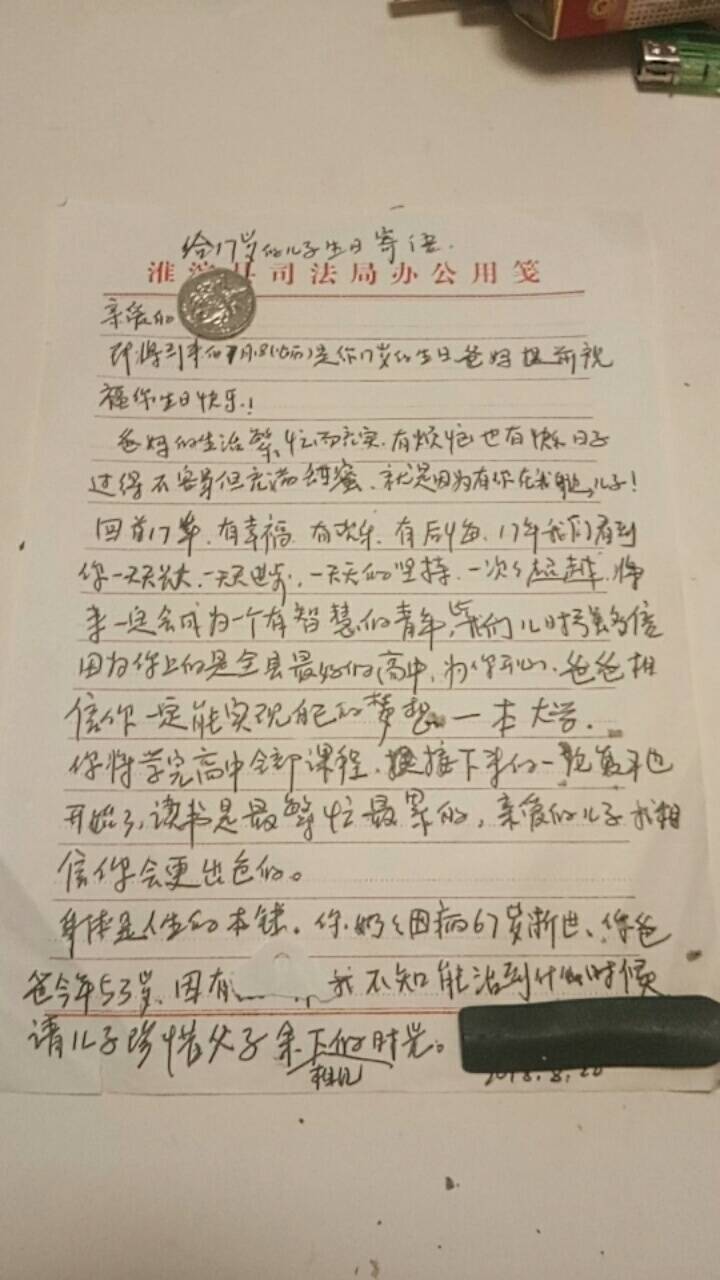 给17岁的儿子生日寄语.
淮滨县司法局办公用笺
亲爱的
即将到来的 是你17岁的生日 爸妈提前祝
福你生日快乐!
爸妈的生活繁忙而充实.有烦恼也有快乐 日子
过得不容易但充满甜蜜.就是因为有你在我 儿子!
回首17年.有幸福.有欢乐.有后悔.17年我们看到
你一天天长大.一天天进步,一天天的坚持.一次次超越.将
来一定会成为一个有智慧的青年,
因为你上的是全县最好的高中,为你开心.爸爸相
信你一定能实现自己的梦想 一本大学.
你将学完高中全部课程. 接下来的一轮复习也
开始了,读书是最繁忙最累的,亲爱的儿子 我相
信你会更出色的。
身体是人生的本钱.你奶奶因病67岁逝世、你爸
爸今年53岁.因有 我不知能活到什么时候
请儿子珍惜父子余下的时光。
2018.8.20